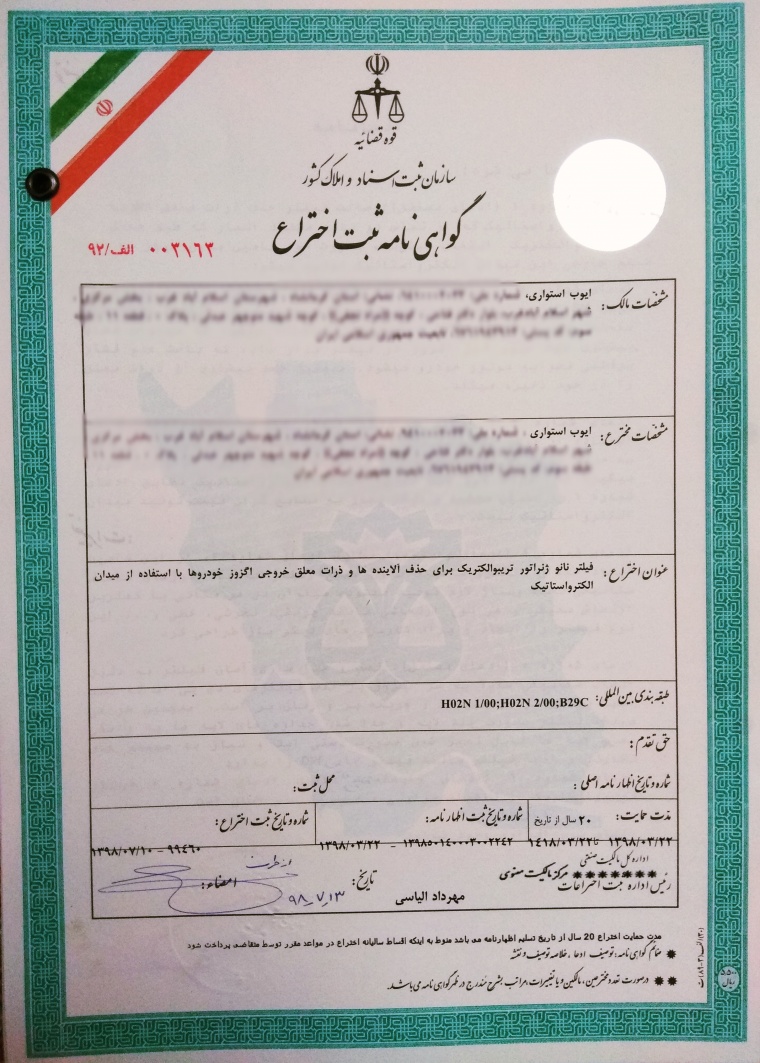 قوه قضائیه
سازمان ثبت اسناد و املاک کشور
گواهی نامه ثبت اختراع
۰۰۳۱۶۳ الف/۹۲
مشخصات مالک: ایوب استواری،
مشخصات مخترع: ایوب استواری ،
عنوان اختراع: فیلتر نانو ژنراتور تریبوالکتریک برای حذف آلاینده ها و ذرات معلق خروجی اگزوز خودروها با استفاده از میدان
الکترواستاتیک
طبقه بندی بین‌المللی: H02N 1/00;H02N 2/00;B29C
حق تقدم:
شماره و تاریخ اظهارنامه اصلی: محل ثبت:
مدت حمایت: ۲۰ سال از تاریخ
۱۳۹۸/۰۳/۲۲ تا ۱۴۱۸/۰۳/۲۲
شماره و تاریخ ثبت اظهارنامه:
۱۳۹۸۵۰۱۴۰۰۰۳۰۰۲۲۴۲ - ۱۳۹۸/۰۳/۲۲
شماره و تاریخ ثبت اختراع:
۹۹۴۶۰ - ۱۳۹۸/۰۷/۱۰
اداره کل مالکیت صنعتی
******* مرکز مالکیت معنوی
رئیس اداره ثبت اختراعات
مهرداد الیاسی
تاریخ: ۹۸_۷_۱۳
امضاء:
مدت حمایت اختراع 20 سال از تاریخ تسلیم اظهارنامه می باشد منوط به اینکه اقساط سالیانه اختراع در مواعد مقرر توسط متقاضی پرداخت شود
* ضمائم گواهی نامه: توصیف، ادعا، خلاصه توصیف و نقشه
** درصورت تعدد مخترعین، مالکین و یا تغییرات، مراتب بشرح مندرج در ظهر گواهی نامه می‌باشد.
۵۵۰۰ ریال